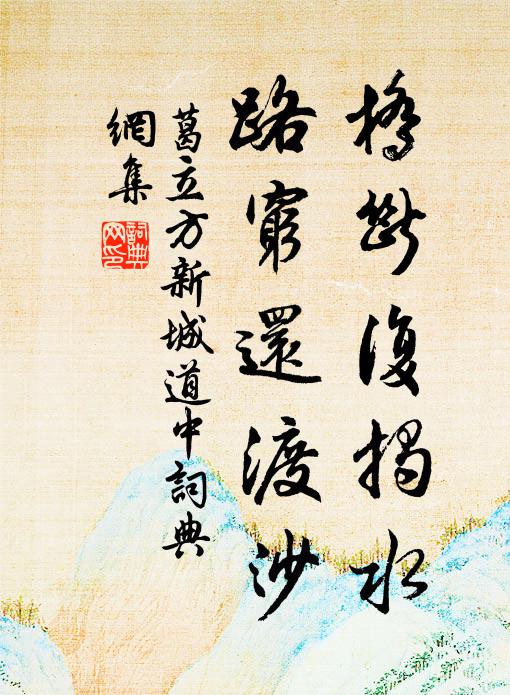 橋斷復揭水
路窮還渡沙
葛立方新城道中詞典
網集
詞典
网印